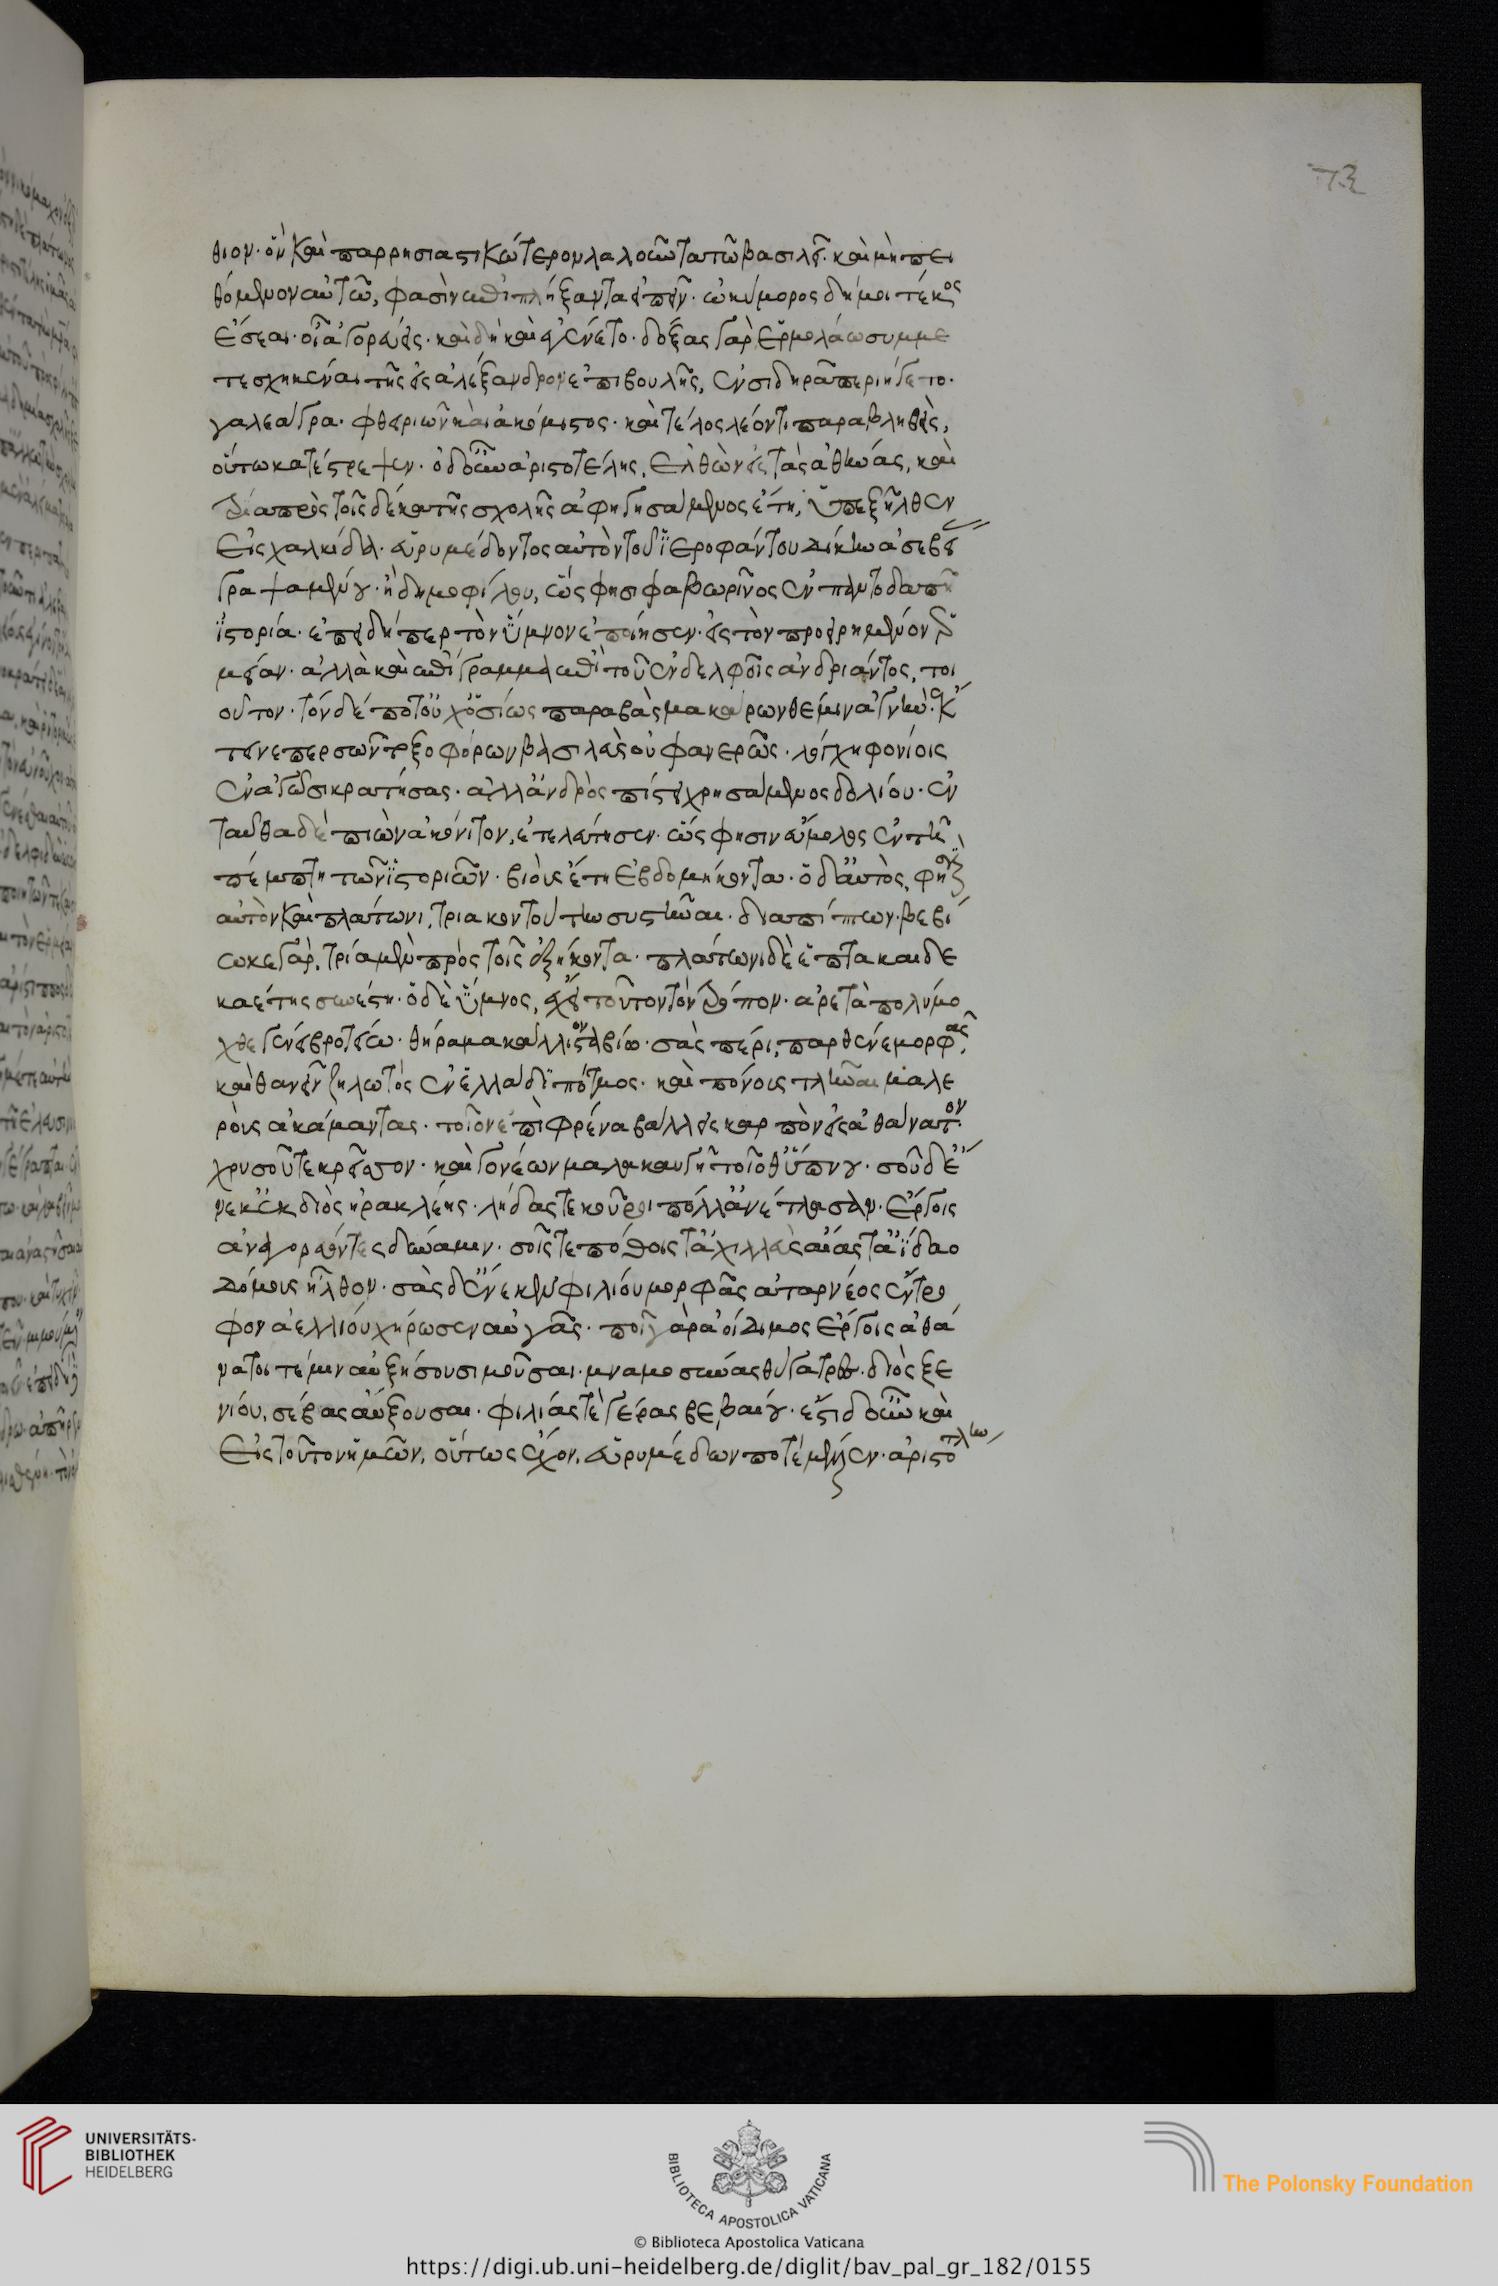 73
θιον· ὃν καὶ παρρησιαστικώτερον λαλοῦντα τῶ βασιλεῖ· καὶ μὴ πει
θόμενον αὐτῶ, φασὶν ἐπιπλήξαντα εἰπεῖν· ὠκύμορος δή μοι τέκος
ἔσεαι· οἷ ἀγορεύεις· καὶ δὴ καὶ ἐγένετο· δόξας γὰρ ἑρμολάω συμμε
τεσχηκέναι τῆς εἰς ἀλέξανδρον ἐπιβουλῆς, ἐν σιδηρᾶ περιήγετο·
γαλεάγρα· φθειριῶν καὶ ἀκόμιστος· καὶ τέλος λέοντι παραβληθεὶς,
οὕτω κατέστρεψεν· ὁ δ οὖν ἀριστοτέλης, ἐλθὼν εἰς τὰς ἀθήνας, καὶ
τρία πρὸς τοῖς δέκα τῆς σχολῆς ἀφηγησάμενος ἔτη, ὑπεξῆλθεν
εἰς χαλκίδα· εὐρυμέδοντος αὐτὸν τοῦ ἱεροφάντου δίκην ἀσεβεί
γραψαμένου· ἢ δημοφίλου, ὥς φησι φαβωρῖνος ἐν παντοδαπῆ
ἱστορία· ἐπειδήπερ τὸν ὕμνον ἐποίησεν· εἰς τὸν προειρημένον ἑρ
μείαν· ἀλλὰ καὶ ἐπίγραμμα ἐπὶ τοῦ ἐν δελφοῖς ἀνδριάντος, τοι
οῦτον· τόνδέ ποτ οὐχ ὁσίως παραβὰς μακάρων θέμιν ἁγνήν· ἔκ
τεινε περσῶν τοξοφόρων βασιλεὺς οὐ φανερῶς· λόγχη φονίοις
ἐν ἀγῶσι κρατήσας· ἀλλ ἀνδρὸς πίστει χρησάμενος δολίου· ἐν
ταῦθα δὲ πιὼν ἀκόνιτον, ἐτελεύτησεν· ὥς φησιν εὔμολος ἐν τῆ
πέμπτη τῶν ἱστοριῶν· βιοὺς ἔτη ἑβδομήκοντα· ὁ δ αὐτὸς, φησὶν
αὐτὸν καὶ πλάτωνι, τριακοντούτην συστῆναι· διαπίπτων· βεβί
ωκε γὰρ, τρία μὲν πρὸς τοῖς ἑξήκοντα· πλάτωνι δὲ ἑπτακαιδε
καέτης συνέστη· ὁ δὲ ὕμνος, ἔχει τοῦτον τὸν τρόπον· ἀρετὰ πολύμο
χθε γένει βροτείω· θήραμα κάλλιστον βίω· σᾶς πέρι, παρθένε μορφᾶς,
καὶ θανεῖν ζηλωτὸς ἐν ἑλλάδι πότμος· καὶ πόνοις τλῆναι μαλε
ροὺς ἀκάμαντας· τοῖον ἐπὶ φρένα βάλλεις καρπὸν εἰς ἀθάνατον·
χρυσοῦ τε κρεῖσσον· καὶ γονέων μαλακαυγητοῖο θ ὕπνου· σοῦ δ ἕ
νεκ ἐκ διὸς ἡρακλέης· λήδας τε κοῦροι πόλλ ἀνέτλασαν· ἔργοις
ἀναγορεύοντες δύναμιν· σοῖς τε πόθοις τ ἀχιλλεὺς αἴας τ ἀΐδαο
δόμους ἦλθον· σᾶς δ ἕνεκεν φιλίου μορφᾶς ἀταρνέος ἔντρο
φον ἀελλίου χήρωσεν αὐγᾶς· τοὶ γὰρ ἀοίδιμος ἔργοις ἀθά
νατοι τέ μιν αὐξήσουσι μοῦσαι· μναμοσύνας θύγατρες· διὸς ξε
νίου, σέβας αὔξουσαι· φιλίας τε γέρας βεβαίου· ἔστι δ οὖν καὶ
εἰς τοῦτον ἡμῶν, οὕτως ἔχον. εὐρυμέδων ποτ ἔμελλεν· ἀριστοτέλην
UNIVERSITÄTS-
BIBLIOTHEK
HEIDELBERG
BIBLIOTECA APOSTOLICA VATICANA
The Polonsky Foundation
© Biblioteca Apostolica Vaticana
https://digi.ub.uni-heidelberg.de/diglit/bav_pal_gr_182/0155